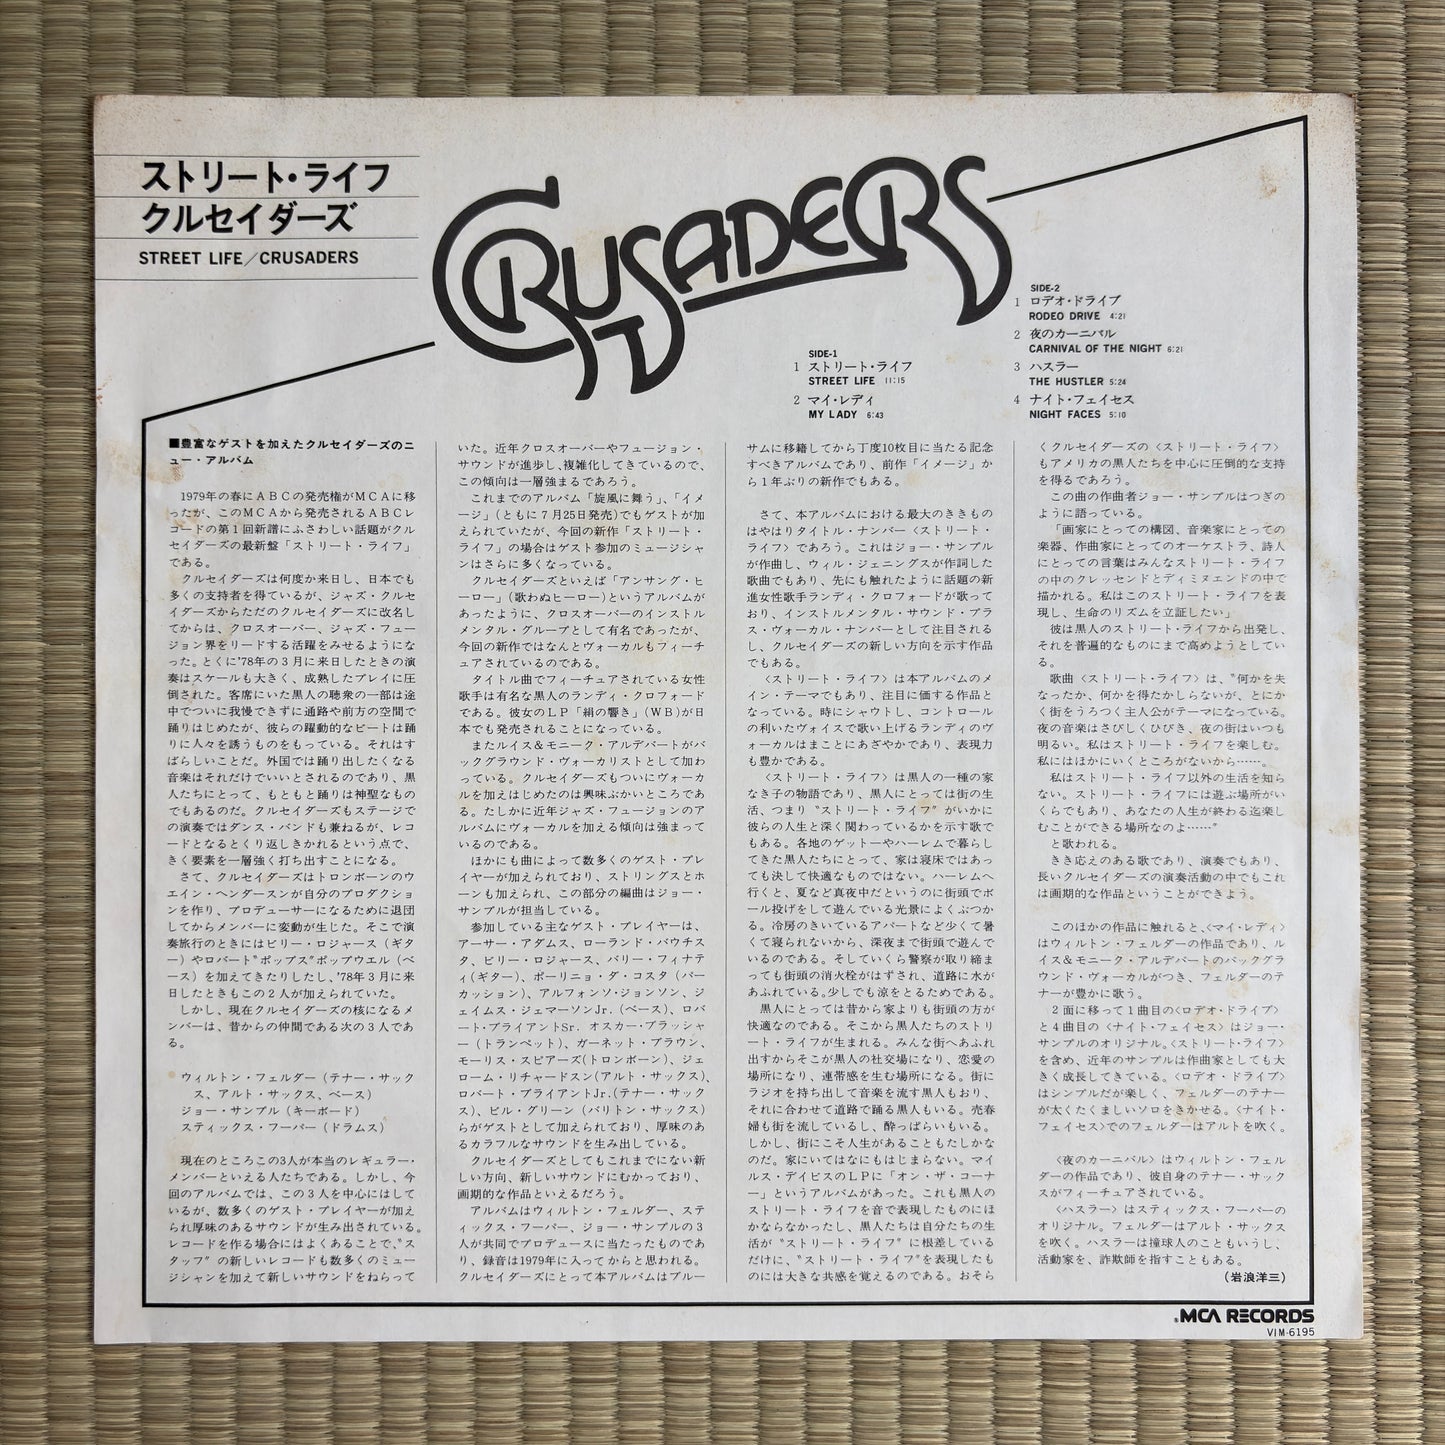 ストリート・ライフ
クルセイダーズ
STREET LIFE／CRUSADERS
CRUSADERS
SIDE-1
1 ストリート・ライフ
STREET LIFE 11:15
2 マイ・レディ
MY LADY 6:43
SIDE-2
1 ロデオ・ドライブ
RODEO DRIVE 4:21
2 夜のカーニバル
CARNIVAL OF THE NIGHT 6:21
3 ハスラー
THE HUSTLER 5:24
4 ナイト・フェイセス
NIGHT FACES 5:10
■豊富なゲストを加えたクルセイダーズのニ
ュー・アルバム
1979年の春にＡＢＣの発売権がＭＣＡに移
ったが、このＭＣＡから発売されるＡＢＣレ
コードの第１回新譜にふさわしい話題がクル
セイダーズの最新盤「ストリート・ライフ」
である。
クルセイダーズは何度か来日し、日本でも
多くの支持者を得ているが、ジャズ・クルセ
イダーズからただのクルセイダーズに改名し
てからは、クロスオーバー、ジャズ・フュー
ジョン界をリードする活躍をみせるようにな
った。とくに'78年の３月に来日したときの演
奏はスケールも大きく、成熟したプレイに圧
倒された。客席にいた黒人の聴衆の一部は途
中でついに我慢できずに通路や前方の空間で
踊りはじめたが、彼らの躍動的なビートは踊
りに人々を誘うものをもっている。それはす
ばらしいことだ。外国では踊り出したくなる
音楽はそれだけでいいとされるのであり、黒
人たちにとって、もともと踊りは神聖なもの
でもあるのだ。クルセイダーズもステージで
の演奏ではダンス・バンドも兼ねるが、レコ
ードとなるとくり返しきかれるという点で、
きく要素を一層強く打ち出すことになる。
さて、クルセイダーズはトロンボーンのウ
エイン・ヘンダースンが自分のプロダクショ
ンを作り、プロデューサーになるために退団
してからメンバーに変動が生じた。そこで演
奏旅行のときにはビリー・ロジャース（ギタ
ー）やロバート〝ポップス〟ポップウエル（ベ
ース）を加えてきたりしたし、'78年３月に来
日したときもこの２人が加えられていた。
しかし、現在クルセイダーズの核になるメ
ンバーは、昔からの仲間である次の３人であ
る。
ウィルトン・フェルダー（テナー・サック
ス、アルト・サックス、ベース）
ジョー・サンプル（キーボード）
スティックス・フーパー（ドラムス）
現在のところこの3人が本当のレギュラー・
メンバーといえる人たちである。しかし、今
回のアルバムでは、この３人を中心にはして
いるが、数多くのゲスト・プレイヤーが加え
られ厚味のあるサウンドが生み出されている。
レコードを作る場合にはよくあることで、〝ス
タッフ〟の新しいレコードも数多くのミュー
ジシャンを加えて新しいサウンドをねらって
いた。近年クロスオーバーやフュージョン・
サウンドが進歩し、複雑化してきているので、
この傾向は一層強まるであろう。
これまでのアルバム「旋風に舞う」、「イメ
ージ」（ともに７月25日発売）でもゲストが加
えられていたが、今回の新作「ストリート・
ライフ」の場合はゲスト参加のミュージシャ
ンはさらに多くなっている。
クルセイダーズといえば「アンサング・ヒ
ーロー」（歌わぬヒーロー）というアルバムが
あったように、クロスオーバーのインストル
メンタル・グループとして有名であったが、
今回の新作ではなんとヴォーカルもフィーチ
ュアされているのである。
タイトル曲でフィーチュアされている女性
歌手は有名な黒人のランディ・クロフォード
である。彼女のＬＰ「絹の響き」（ＷＢ）が日
本でも発売されることになっている。
またルイス＆モニーク・アルデバートがバ
ックグラウンド・ヴォーカリストとして加わ
っている。クルセイダーズもついにヴォーカ
ルを加えはじめたのは興味ぶかいところであ
る。たしかに近年ジャズ・フュージョンのア
ルバムにヴォーカルを加える傾向は強まって
いるのである。
ほかにも曲によって数多くのゲスト・プレ
イヤーが加えられており、ストリングスとホ
ーンも加えられ、この部分の編曲はジョー・
サンプルが担当している。
参加している主なゲスト・プレイヤーは、
アーサー・アダムス、ローランド・バウチス
タ、ビリー・ロジャース、バリー・フィナテ
ィ（ギター）、ポーリニョ・ダ・コスタ（パー
カッション）、アルフォンソ・ジョンソン、ジ
ェイムス・ジェマーソンJr.（ベース）、ロバ
ート・ブライアントSr. オスカー・ブラッシャ
ー（トランペット）、ガーネット・ブラウン、
モーリス・スピアーズ（トロンボーン）、ジェ
ローム・リチャードスン（アルト・サックス）、
ロバート・ブライアントJr.（テナー・サック
ス）、ビル・グリーン（バリトン・サックス）
らがゲストとして加えられており、厚味のあ
るカラフルなサウンドを生み出している。
クルセイダーズとしてもこれまでにない新
しい方向、新しいサウンドにむかっており、
画期的な作品といえるだろう。
アルバムはウィルトン・フェルダー、ステ
ィックス・フーパー、ジョー・サンプルの３
人が共同でプロデュースに当たったものであ
り、録音は1979年に入ってからと思われる。
クルセイダーズにとって本アルバムはブルー
サムに移籍してから丁度10枚目に当たる記念
すべきアルバムであり、前作「イメージ」か
ら１年ぶりの新作でもある。
さて、本アルバムにおける最大のききもの
はやはりタイトル・ナンバー〈ストリート・
ライフ〉であろう。これはジョー・サンプル
が作曲し、ウィル・ジェニングスが作詞した
歌曲でもあり、先にも触れたように話題の新
進女性歌手ランディ・クロフォードが歌って
おり、インストルメンタル・サウンド・プラ
ス・ヴォーカル・ナンバーとして注目される
し、クルセイダーズの新しい方向を示す作品
でもある。
〈ストリート・ライフ〉は本アルバムのメ
イン・テーマでもあり、注目に価する作品と
なっている。時にシャウトし、コントロール
の利いたヴォイスで歌い上げるランディのヴ
ォーカルはまことにあざやかであり、表現力
も豊かである。
〈ストリート・ライフ〉は黒人の一種の家
なき子の物語であり、黒人にとっては街の生
活、つまり〝ストリート・ライフ〟がいかに
彼らの人生と深く関わっているかを示す歌で
もある。各地のゲットーやハーレムで暮らし
てきた黒人たちにとって、家は寝床ではあっ
ても決して快適なものではない。ハーレムへ
行くと、夏など真夜中だというのに街頭でボ
ール投げをして遊んでいる光景によくぶつか
る。冷房のきいているアパートなど少くて暑
くて寝られないから、深夜まで街頭で遊んで
いるのである。そしていくら警察が取り締ま
っても街頭の消火栓がはずされ、道路に水が
あふれている。少しでも涼をとるためである。
黒人にとっては昔から家よりも街頭の方が
快適なのである。そこから黒人たちのストリ
ート・ライフが生まれる。みんな街へあふれ
出すからそこが黒人の社交場になり、恋愛の
場所になり、連帯感を生む場所になる。街に
ラジオを持ち出して音楽を流す黒人もおり、
それに合わせて道路で踊る黒人もいる。売春
婦も街を流しているし、酔っぱらいもいる。
しかし、街にこそ人生があることもたしかな
のだ。家にいてはなにもはじまらない。マイ
ルス・デイビスのＬＰに「オン・ザ・コーナ
ー」というアルバムがあった。これも黒人の
ストリート・ライフを音で表現したものにほ
かならなかったし、黒人たちは自分たちの生
活が〝ストリート・ライフ〟に根差している
だけに、〝ストリート・ライフ〟を表現したも
のには大きな共感を覚えるのである。おそら
くクルセイダーズの〈ストリート・ライフ〉
もアメリカの黒人たちを中心に圧倒的な支持
を得るであろう。
この曲の作曲者ジョー・サンプルはつぎの
ように語っている。
「画家にとっての構図、音楽家にとっての
楽器、作曲家にとってのオーケストラ、詩人
にとっての言葉はみんなストリート・ライフ
の中のクレッセンドとディミヌエンドの中で
描かれる。私はこのストリート・ライフを表
現し、生命のリズムを立証したい」
彼は黒人のストリート・ライフから出発し、
それを普遍的なものにまで高めようとしてい
る。
歌曲〈ストリート・ライフ〉は、〝何かを失
なったか、何かを得たかしらないが、とにか
く街をうろつく主人公がテーマになっている。
夜の音楽はさびしくひびき、夜の街はいつも
明るい。私はストリート・ライフを楽しむ。
私にはほかにいくところがないから……。
私はストリート・ライフ以外の生活を知ら
ない。ストリート・ライフには遊ぶ場所がい
くらでもあり、あなたの人生が終わる迄楽し
むことができる場所なのよ……〟
と歌われる。
きき応えのある歌であり、演奏でもあり、
長いクルセイダーズの演奏活動の中でもこれ
は画期的な作品ということができよう。
このほかの作品に触れると、〈マイ・レディ〉
はウィルトン・フェルダーの作品であり、ル
イス＆モニーク・アルデバートのバックグラ
ウンド・ヴォーカルがつき、フェルダーのテ
ナーが豊かに歌う。
２面に移って１曲目の〈ロデオ・ドライブ〉
と４曲目の〈ナイト・フェイセス〉はジョー・
サンプルのオリジナル。〈ストリート・ライフ〉
を含め、近年のサンプルは作曲家としても大
きく成長してきている。〈ロデオ・ドライブ〉
はシンプルだが楽しく、フェルダーのテナー
が太くたくましいソロをきかせる。〈ナイト・
フェイセス〉でのフェルダーはアルトを吹く。
〈夜のカーニバル〉はウィルトン・フェル
ダーの作品であり、彼自身のテナー・サック
スがフィーチュアされている。
〈ハスラー〉はスティックス・フーパーの
オリジナル。フェルダーはアルト・サックス
を吹く。ハスラーは撞球人のこともいうし、
活動家を、詐欺師を指すこともある。
（岩浪洋三）
MCA RECORDS
VIM-6195